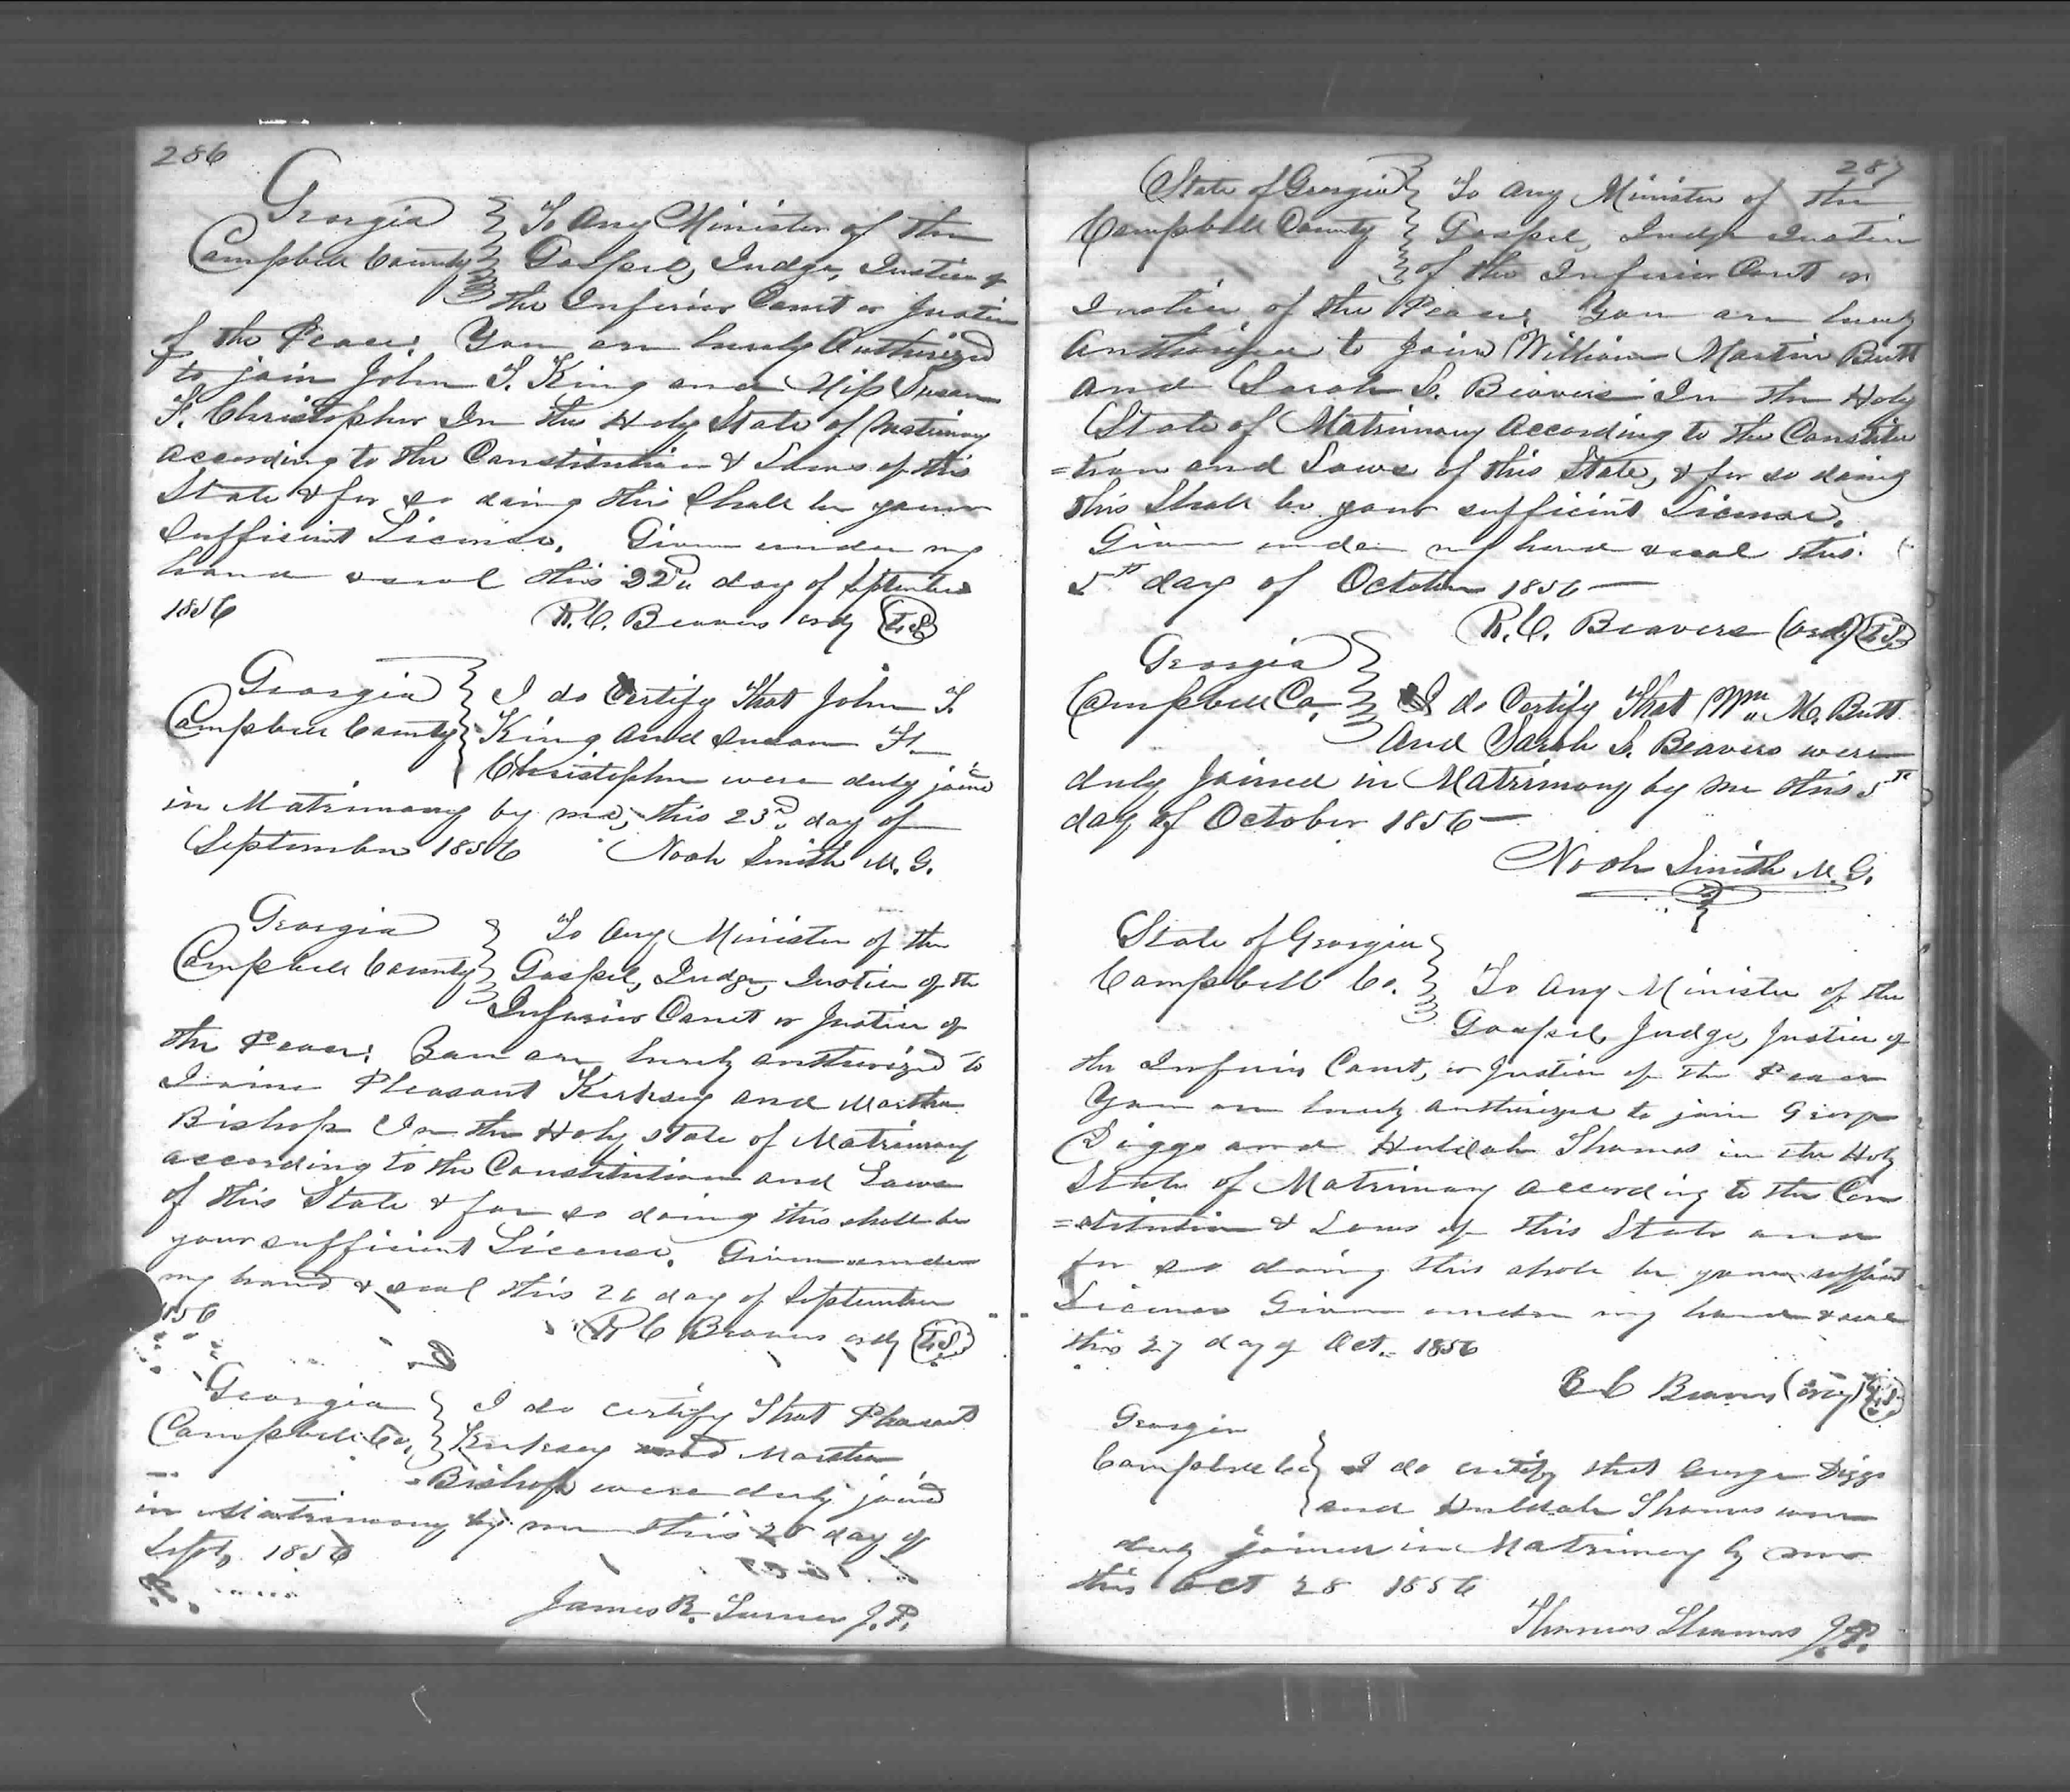 286
Georgia } To Any Minister of the
Campbell County } Gospel, Judge, Justice of
the Inferior Court or Justice
of the Peace: You are hereby Authorized
to join John T. King and Miss Susan
F. Christopher In the Holy State of Matrimony
according to the Constitution & Laws of this
State & for so doing this Shall be your
Sufficient License. Given under my
hand & seal this 22d day of September
1856 R. C. Beavers ordy L.S.
Georgia } I do Certify That John T.
Campbell County } King and Susan F.
Christopher were duly joined
in Matrimony by me, this 23d day of
September 1856 Noah Smith M. G.
Georgia } To Any Minister of the
Campbell County } Gospel, Judge, Justice of the
Inferior Court or Justice of
the Peace: You are hereby authorized to
Joine Pleasant Kirksey and Martha
Bishop In the Holy state of Matrimony
according to the Constitution and Laws
of this State & for so doing this shall be
your sufficient License. Given under
my hand & seal this 26 day of September
1856
R C Beavers ordy L.S.
Georgia } I do certify That Pleasant
Campbell Co. } Kirksey and Martha
Bishop were duly joined
in Matrimony by me this 28 day of
Sept, 1856
James R. Turner J. P.
287
State of Georgia } To Any Minister of the
Campbell County } Gospel, Judge Justice
of the Inferior Court or
Justice of the Peace: You are hereby
Authorized to join William Martin Butt
and Sarah S. Beavers In the Holy
State of Matrimony According to the Constitu
=tion and Laws of this State, & for so doing
this Shall be your sufficient License.
Given under my hand & seal this
5th day of October 1856
R. C. Beavers (ordy) L.S.
Georgia }
Campbell Co. } I do Certify That Wm M. Butt
And Sarah S. Beavers were
duly Joined in Matrimony by me this 5th
day of October 1856
Noah Smith M. G.
State of Georgia }
Campbell Co. } To Any Minister of the
Gospel, Judge, Justice of
the Inferior Court, or Justice of the Peace
You are hereby authorized to join George
Diggs and Huldah Thomas in the Holy
State of Matrimony According to the Con
=stitution & Laws of this State and
for so doing this shall be your sufficient
License Given under my hand & seal
this 27 day of Oct. 1856
R C Beavers (ordy) L.S.
Georgia
Campbell Co } I do certify that George Diggs
and Huldah Thomas were
duly joined in Matrimony by me
this Oct 28 1856
Thomas Thomas J.P.